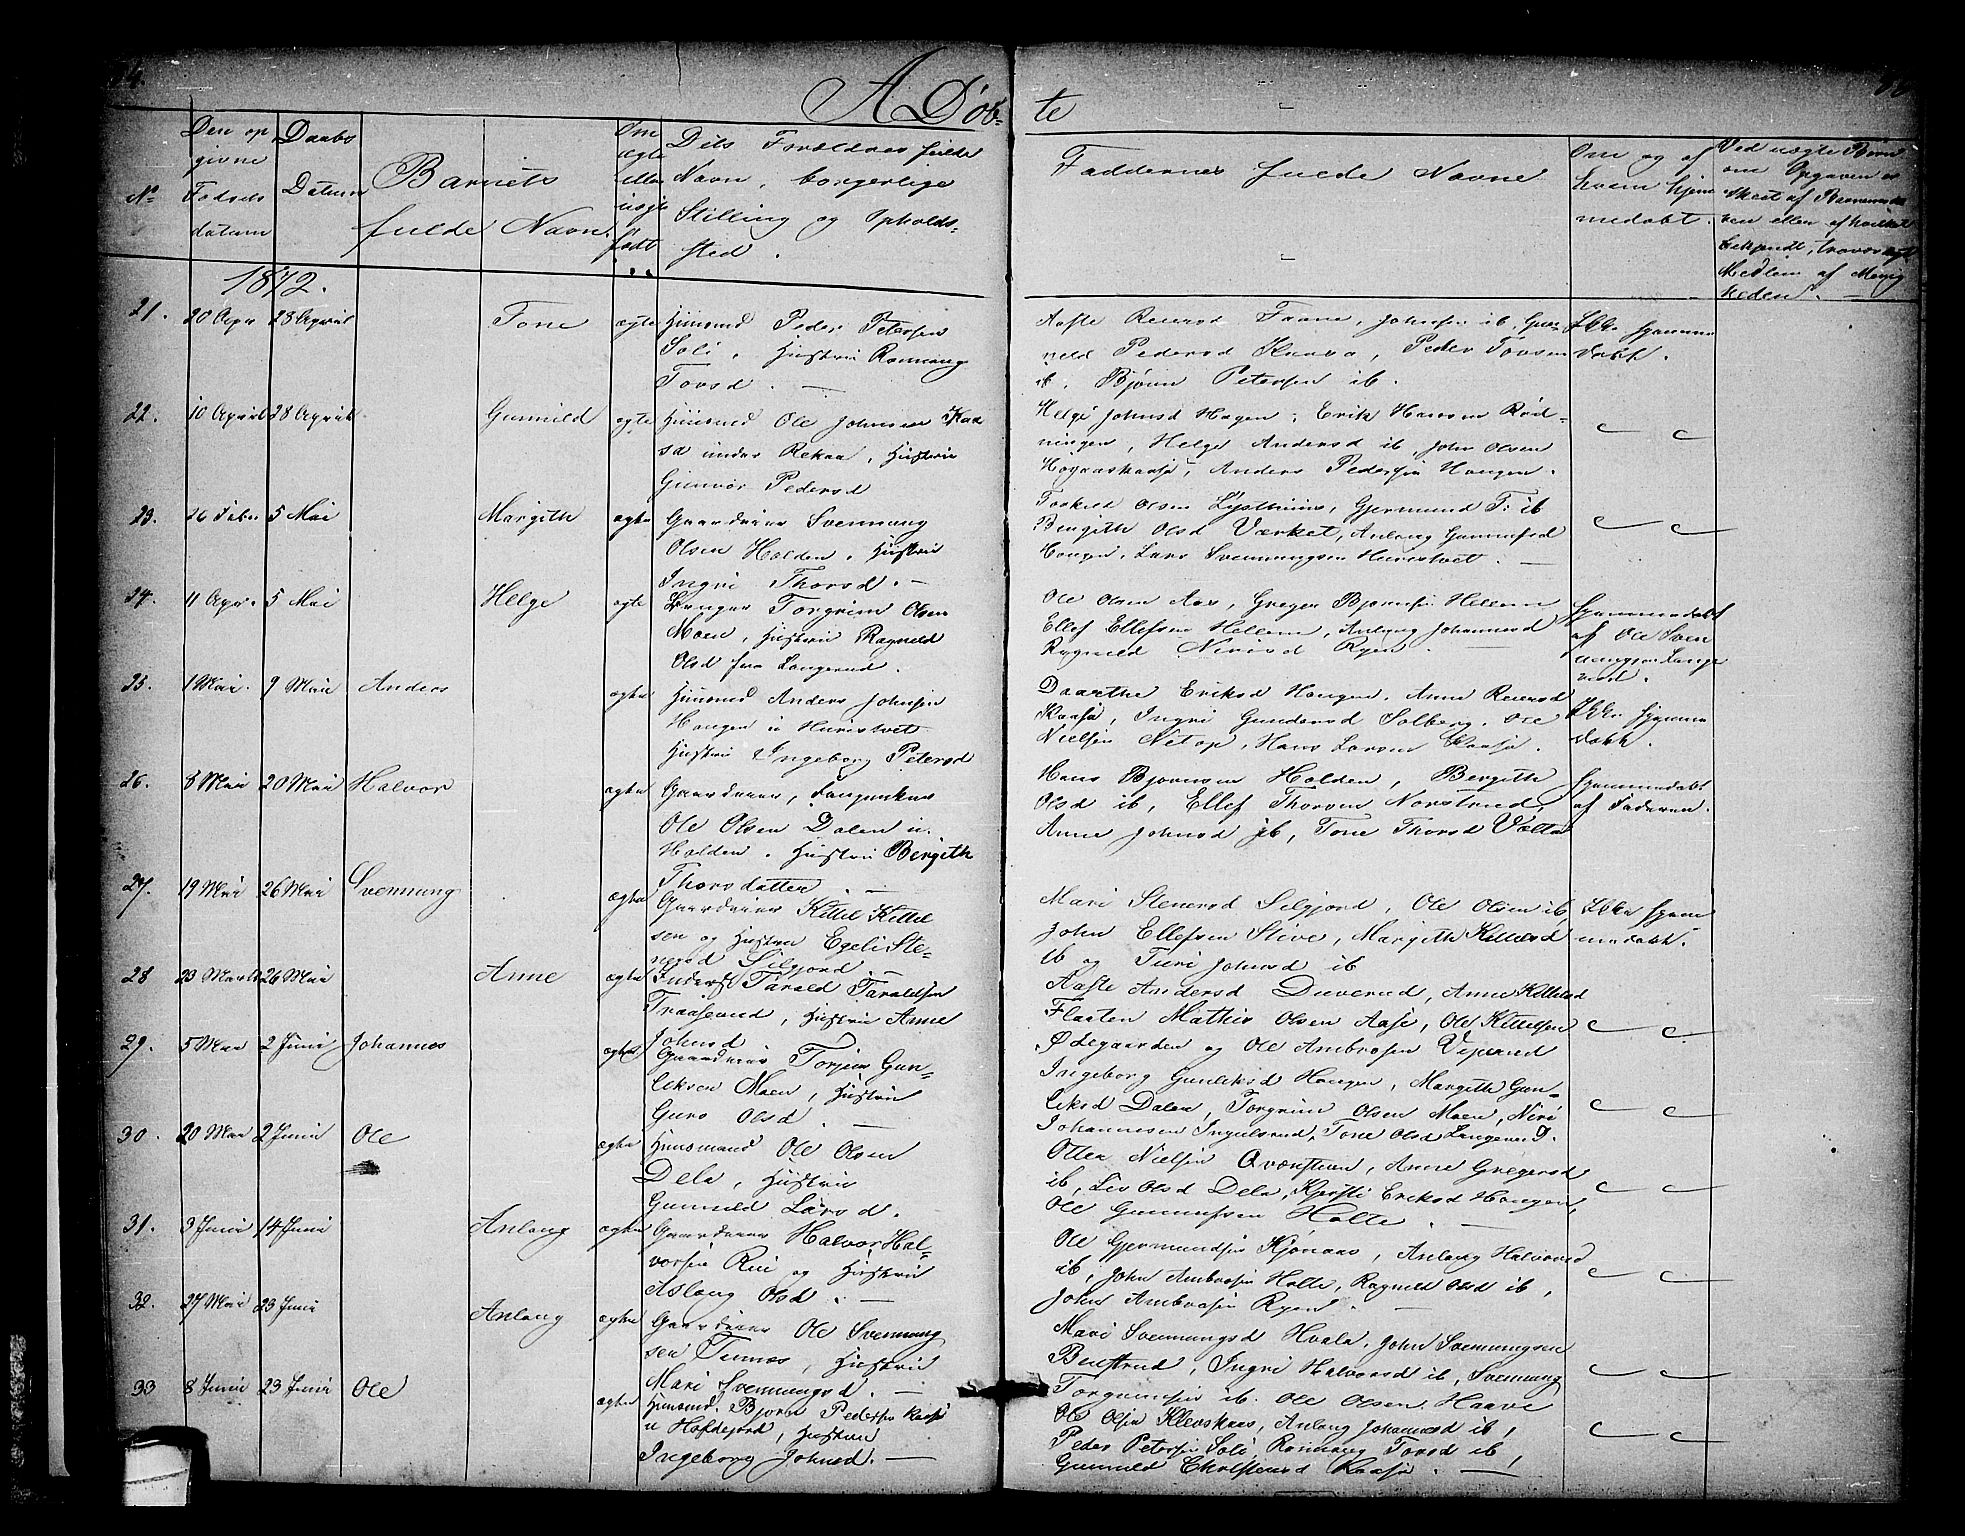 A Døb-
te
No
Den op
givne
Fødsels
datum
Daabs
Datum
Barnets
fulde Navn.
Om
ægte
eller
uægte
født
Dets Forældres fulde
Navn, borgerlige
Stilling og Opholds-
sted.
Faddernes fulde Navne
Om og af
hvem hjem
medøbt.
Ved uægte Børn
om Opgaven er
skeet af Barnemode
ren eller af hvilket
bekjendt, troværdigt
Medlem af Menig
heden.
1872.
21. 20 Apr 28 April Tone ægte Huusmd Peder Petersen
Soli, Hustru Rønnaug
Torsd.
Aaste Reiersd Faane, Johnsen ib, Gun-
nild Pedersd Kaasa, Peder Torsen
ib. Bjørn Petersen ib.
Ikke hjemme
døbt.
22. 10 April 28 April Gunnild ægte Huusmd Ole Johnsen Kaa
sa under Rekaa, Hustru
Gunvor Pedersd
Helge Johnsd Haugen, Erik Hansen Rød-
ningen, Helge Andersd ib, John Olsen
Høgaaskaasa, Anders Pedersen Haugen.
23. 26 Febr 5 Mai Margith ægte Gaardeier Svennung
Olsen Holden, Hustru
Ingri Thorsd.
Torkild Olsen Lysthuus, Gjermund T. ib
Bergith Olsd Værket, Anlaug Gunnufsd
Haugen, Lars Svennungsen Hurestvet.
24. 11 Apr. 5 Mai Helge ægte Torgrim Olsen
Moen, Hustru Ragnild
Olsd fra Langerud.
Ole Olsen Aas, Greger Bjørnsen Hellem
Ellef Ellefsen Hellem, Anlaug Johannesd
Ragnild Nirisd Ryen.
Hjemmedøbt
af Ole Sven
nungsen Lange
rud.
25. 1 Mai. 9 Mai Anders ægte Huusmd Anders Johnsen
Haugen u Hurestvet
Hustru Ingeborg Petersd
Daarthe Eriksd Haugen, Anne Reiersd
Kaasa, Ingri Gundersd Solberg, Ole
Nielsen Netop, Hans Larsen Kaasa.
Ikke hjemme
døbt.
26. 8 Mai 20 Mai Halvor ægte Gaardeier,
Ole Olsen Dalen u.
Holden, Hustru Bergith
Thorsdatter.
Hans Bjørnsen Holden, Bergith
Olsd ib, Ellef Thorsen Norstrud,
Anne Johnsd ib, Tone Thorsd
Hjemmedøbt
af Faderen.
27. 19 Mai 26 Mai Svennung ægte Gaardeier Kittel Kittel
sen og Hustru Egeli Ste-
nersd Silgjord.
Mari Stenersd Silgjord, Ole Olsen ib,
John Ellefsen Stive, Margith Kittelsd
ib og Turi Johnsd ib
Ikke hjem
medøbt.
28 23 Marts 26 Mai Anne ægte Inderst Tarald Taraldsen
Traaserud, Hustru Anne
Johnsd
Aaste Andersd Duverud, Anne Kittelsd
Flaaten Mathis Olsen Aase, Ole Kittelsen
Ødegaarden og Ole Ambrosen Viperud
29. 5 Mai 2 Juni Johannes ægte Gaardeier Torjus Gun-
leksen Moen, Hustru
Guro Olsd.
Ingeborg Gunleksd Haugen, Margith Gun-
leksd Dalen, Torgrim Olsen Moen, Niri
Johannesen Ingulsrud, Tone Olsd Langerud.
30. 20 Mai 2 Juni Ole ægte Huusmand Ole Olsen
Dela, Hustru
Gunnild Larsd.
Otter Nielsen Qværsteen, Anne Gregersd
ib, Liv Olsd Dela, Kjersti Eriksd Haugen,
Ole Gunnufsen Holte.
31. 3 Juni 14 Juni Anlaug ægte Gaardeier Halvor Hal-
vorsen Rui og Hustru
Aslaug Olsd.
Ole Gjermundsen Kjønaas, Anlaug Halvorsd
ib, John Ambrosen Holte, Ragnild Olsd ib,
John Ambrosen Ryen.
32. 27 Mai 23 Juni Anlaug ægte Gaardeier Ole Svennung
sen Tunnes, Hustru
Mari Svennungsd.
Mari Svennungsd Hvala, John Svennungsen
Benstrud, Ingri Halvorsd ib, Svennung
Torgrimsen ib. Ole Olsen Haave
33 8 Juni 23 Juni Ole ægte Huusmd. Bjørn Pedersen Kaasa
u Høfdejord, Hustru
Ingeborg Johnsd.
Ole Olsen Klevskaas, Anlaug Johannesd ib,
Peder Petersen Soli, Rønnaug Torsd ib,
Gunnild Kaasa.